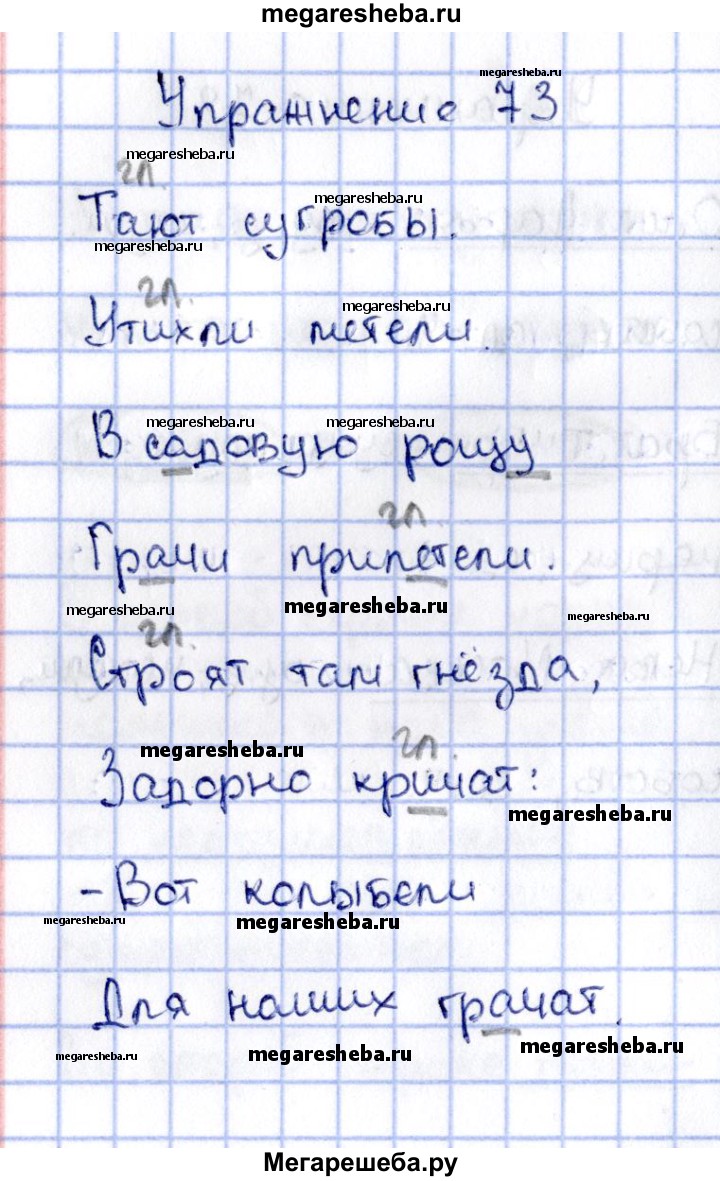 megaresheba.ru
megaresheba.ru
Упражнение 73
megaresheba.ru
гл.
megaresheba.ru
Тают сугробы.
megaresheba.ru
гл.
megaresheba.ru
Утихли метели.
megaresheba.ru megaresheba.ru
В садовую рощу
гл.
Грачи прилетели.
megaresheba.ru megaresheba.ru megaresheba.ru
гл.
Строят там гнёзда,
megaresheba.ru гл.
Задорно кричат:
megaresheba.ru
-Вот колыбели
megaresheba.ru megaresheba.ru
Для наших грачат.
megaresheba.ru megaresheba.ru megaresheba.ru
Мегарешеба.ру